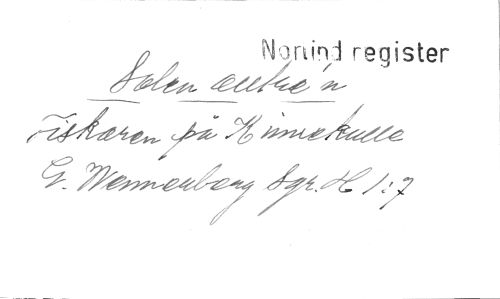 Norlind register
Solen
Fiskaren på Kinnekulle
G. Wennerberg Sgr. H 1:7